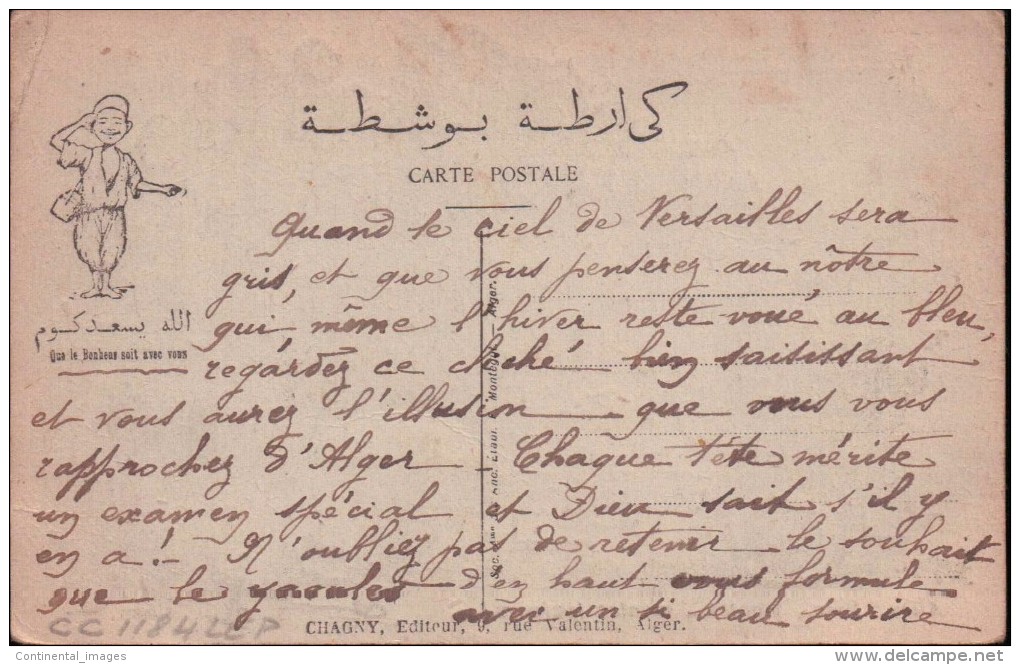 كى ارطـة بـوشطـة
CARTE POSTALE
الله يسعدكـوم
Que le Bonheur soit avec vous
Quand le ciel de Versailles sera
gris, et que vous penserez au nôtre
qui même l'hiver reste voué au bleu,
regardez ce cliché bien saisissant
et vous aurez l'illusion que vous vous
rapprochez d'Alger - Chaque tête mérite
un examen spécial et Dieu sait s'il y
en a !- N'oubliez pas de retenir le souhait
que le yaouled d'en haut vous formule
avec un si beau sourire
Alger.
CHAGNY, Editeur, 9, rue Valentin, Alger.
CC 1184 LLP
Continental_images
delcampe.net